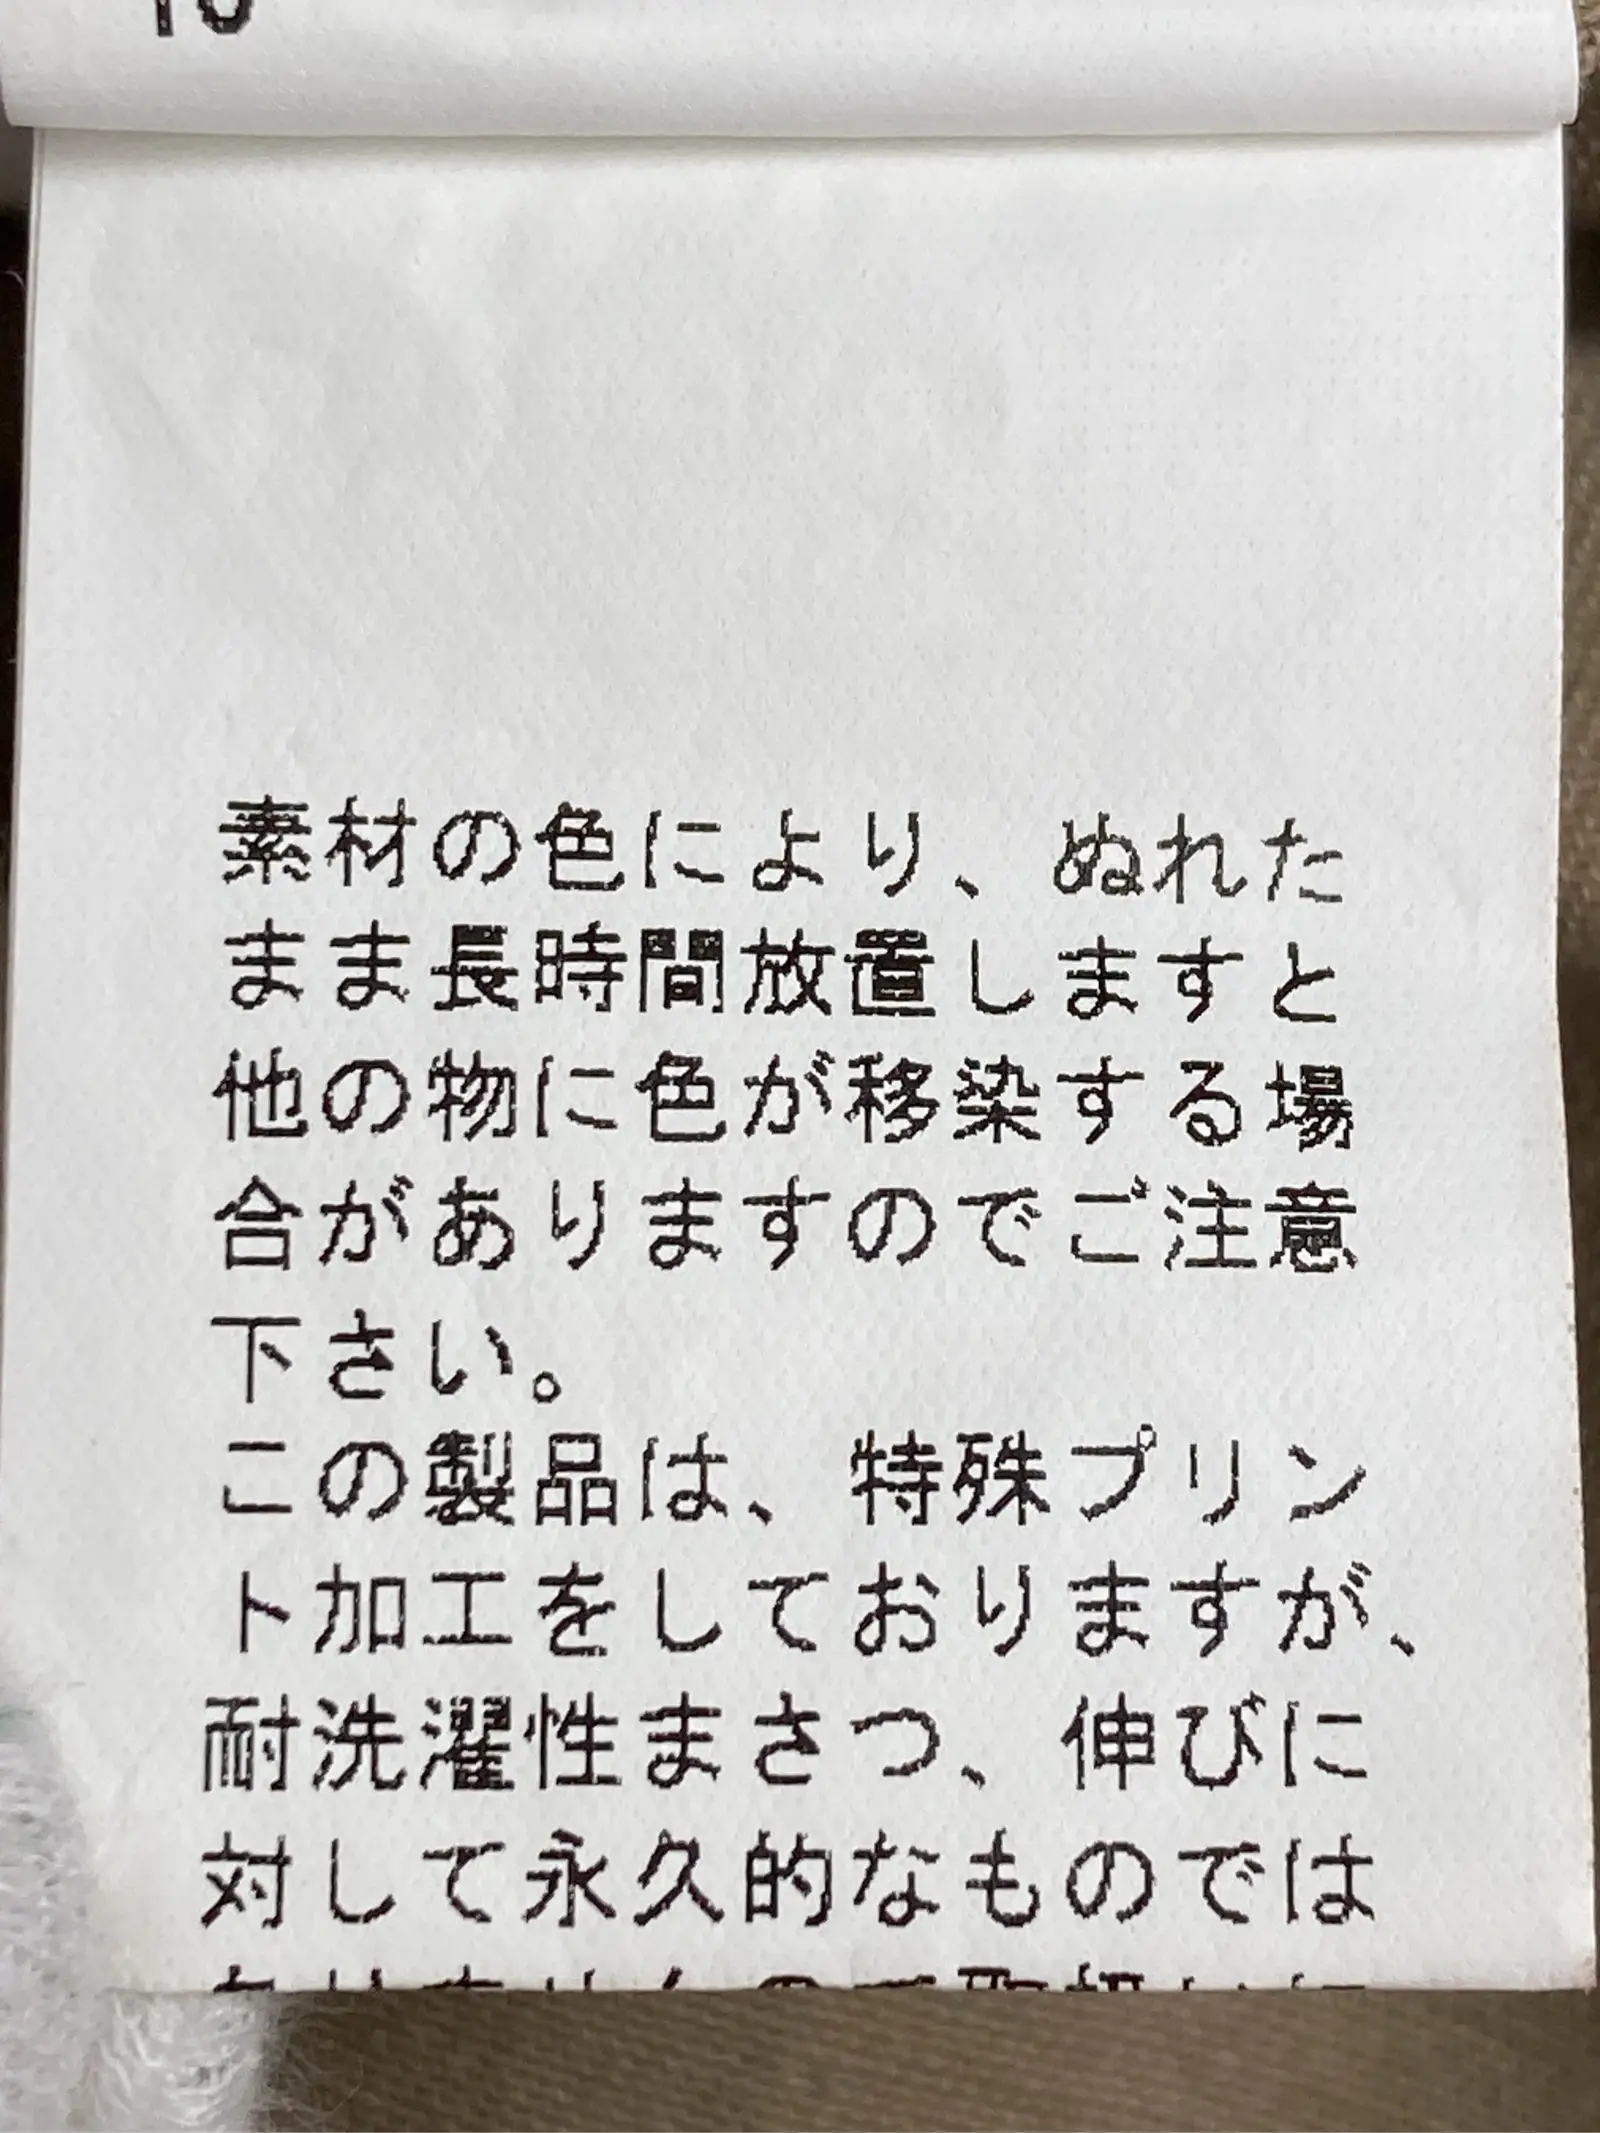 素材の色により、ぬれた
まま長時間放置しますと
他の物に色が移染する場
合がありますのでご注意
下さい。
この製品は、特殊プリン
ト加工をしておりますが、
耐洗濯性まさつ、伸びに
対して永久的なものでは